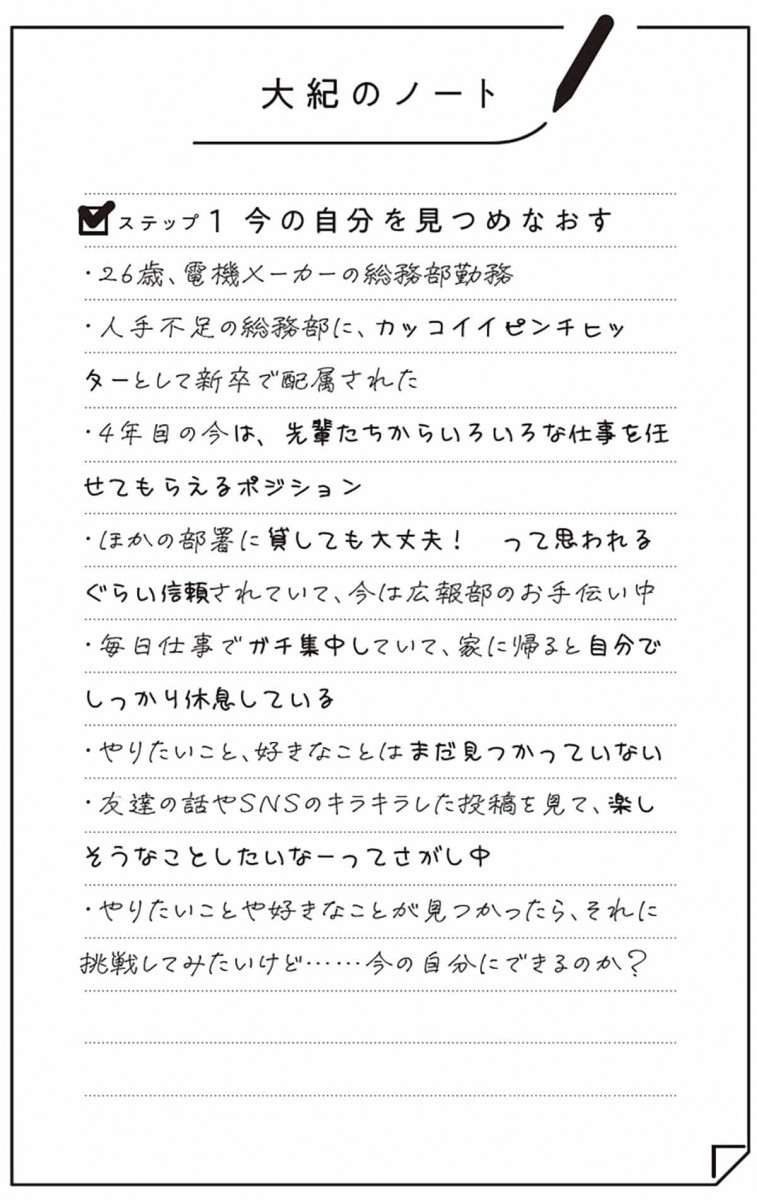 大紀のノート
ステップ1 今の自分を見つめなおす
・26歳、電機メーカーの総務部勤務
・人手不足の総務部に、カッコイイピンチヒッ
ターとして新卒で配属された
・4年目の今は、先輩たちからいろいろな仕事を任
せてもらえるポジション
・ほかの部署に貸しても大丈夫！　って思われる
ぐらい信頼されていて、今は広報部のお手伝い中
・毎日仕事でガチ集中していて、家に帰ると自分で
しっかり休息している
・やりたいこと、好きなことはまだ見つかっていない
・友達の話やSNSのキラキラした投稿を見て、楽し
そうなことしたいなーってさがし中
・やりたいことや好きなことが見つかったら、それに
挑戦してみたいけど……今の自分にできるのか？